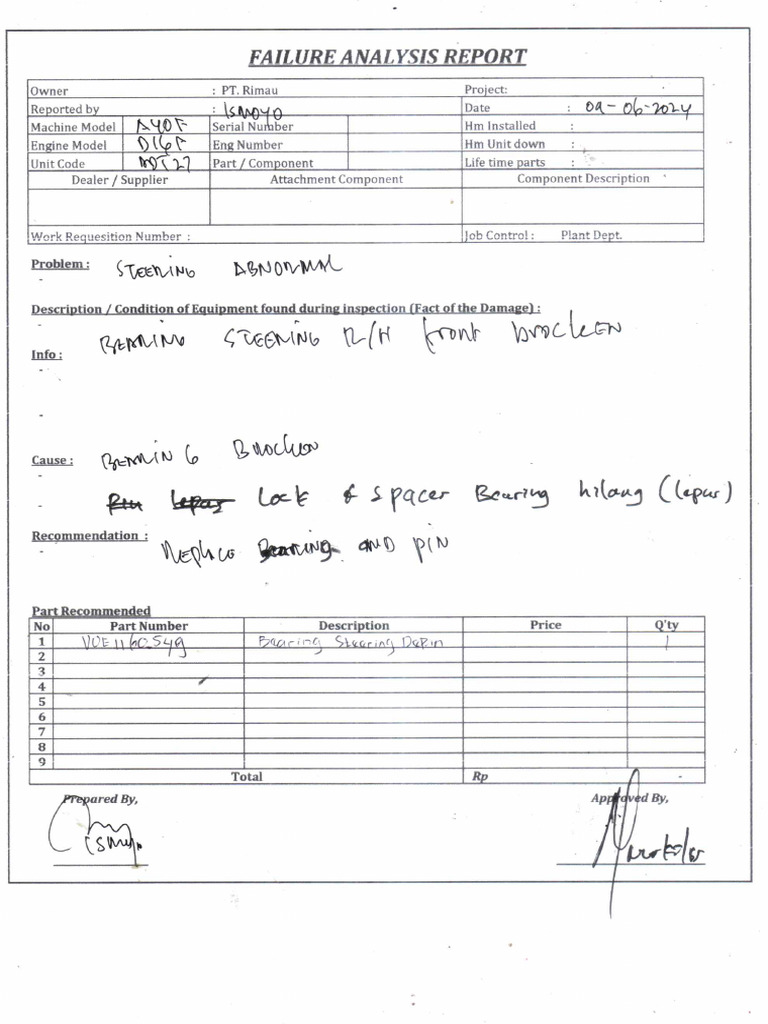 FAILURE ANALYSIS REPORT
Owner : PT. Rimau Project:
Reported by : ISMOYO Date : 09-06-2024
Machine Model A40F Serial Number Hm Installed :
Engine Model D16F Eng Number Hm Unit down :
Unit Code ADT27 Part / Component Life time parts :
Dealer / Supplier Attachment Component Component Description
Work Requesition Number : Job Control : Plant Dept.
Problem : STEERING ABNORMAL
-
Description / Condition of Equipment found during inspection (Fact of the Damage) :
- BEARING STEERING R/H front brocken
Info :
-
-
Cause : BEARING Brocken
-
- Lock & spacer Bearing hilang (lepas)
Recommendation : Replace Bearing AND pin
-
Part Recommended
No Part Number Description Price Q'ty
1 Bearing Steering Depan 1
2
3
4
5
6
7
8
9
Total Rp -
Prepared By, Approved By,